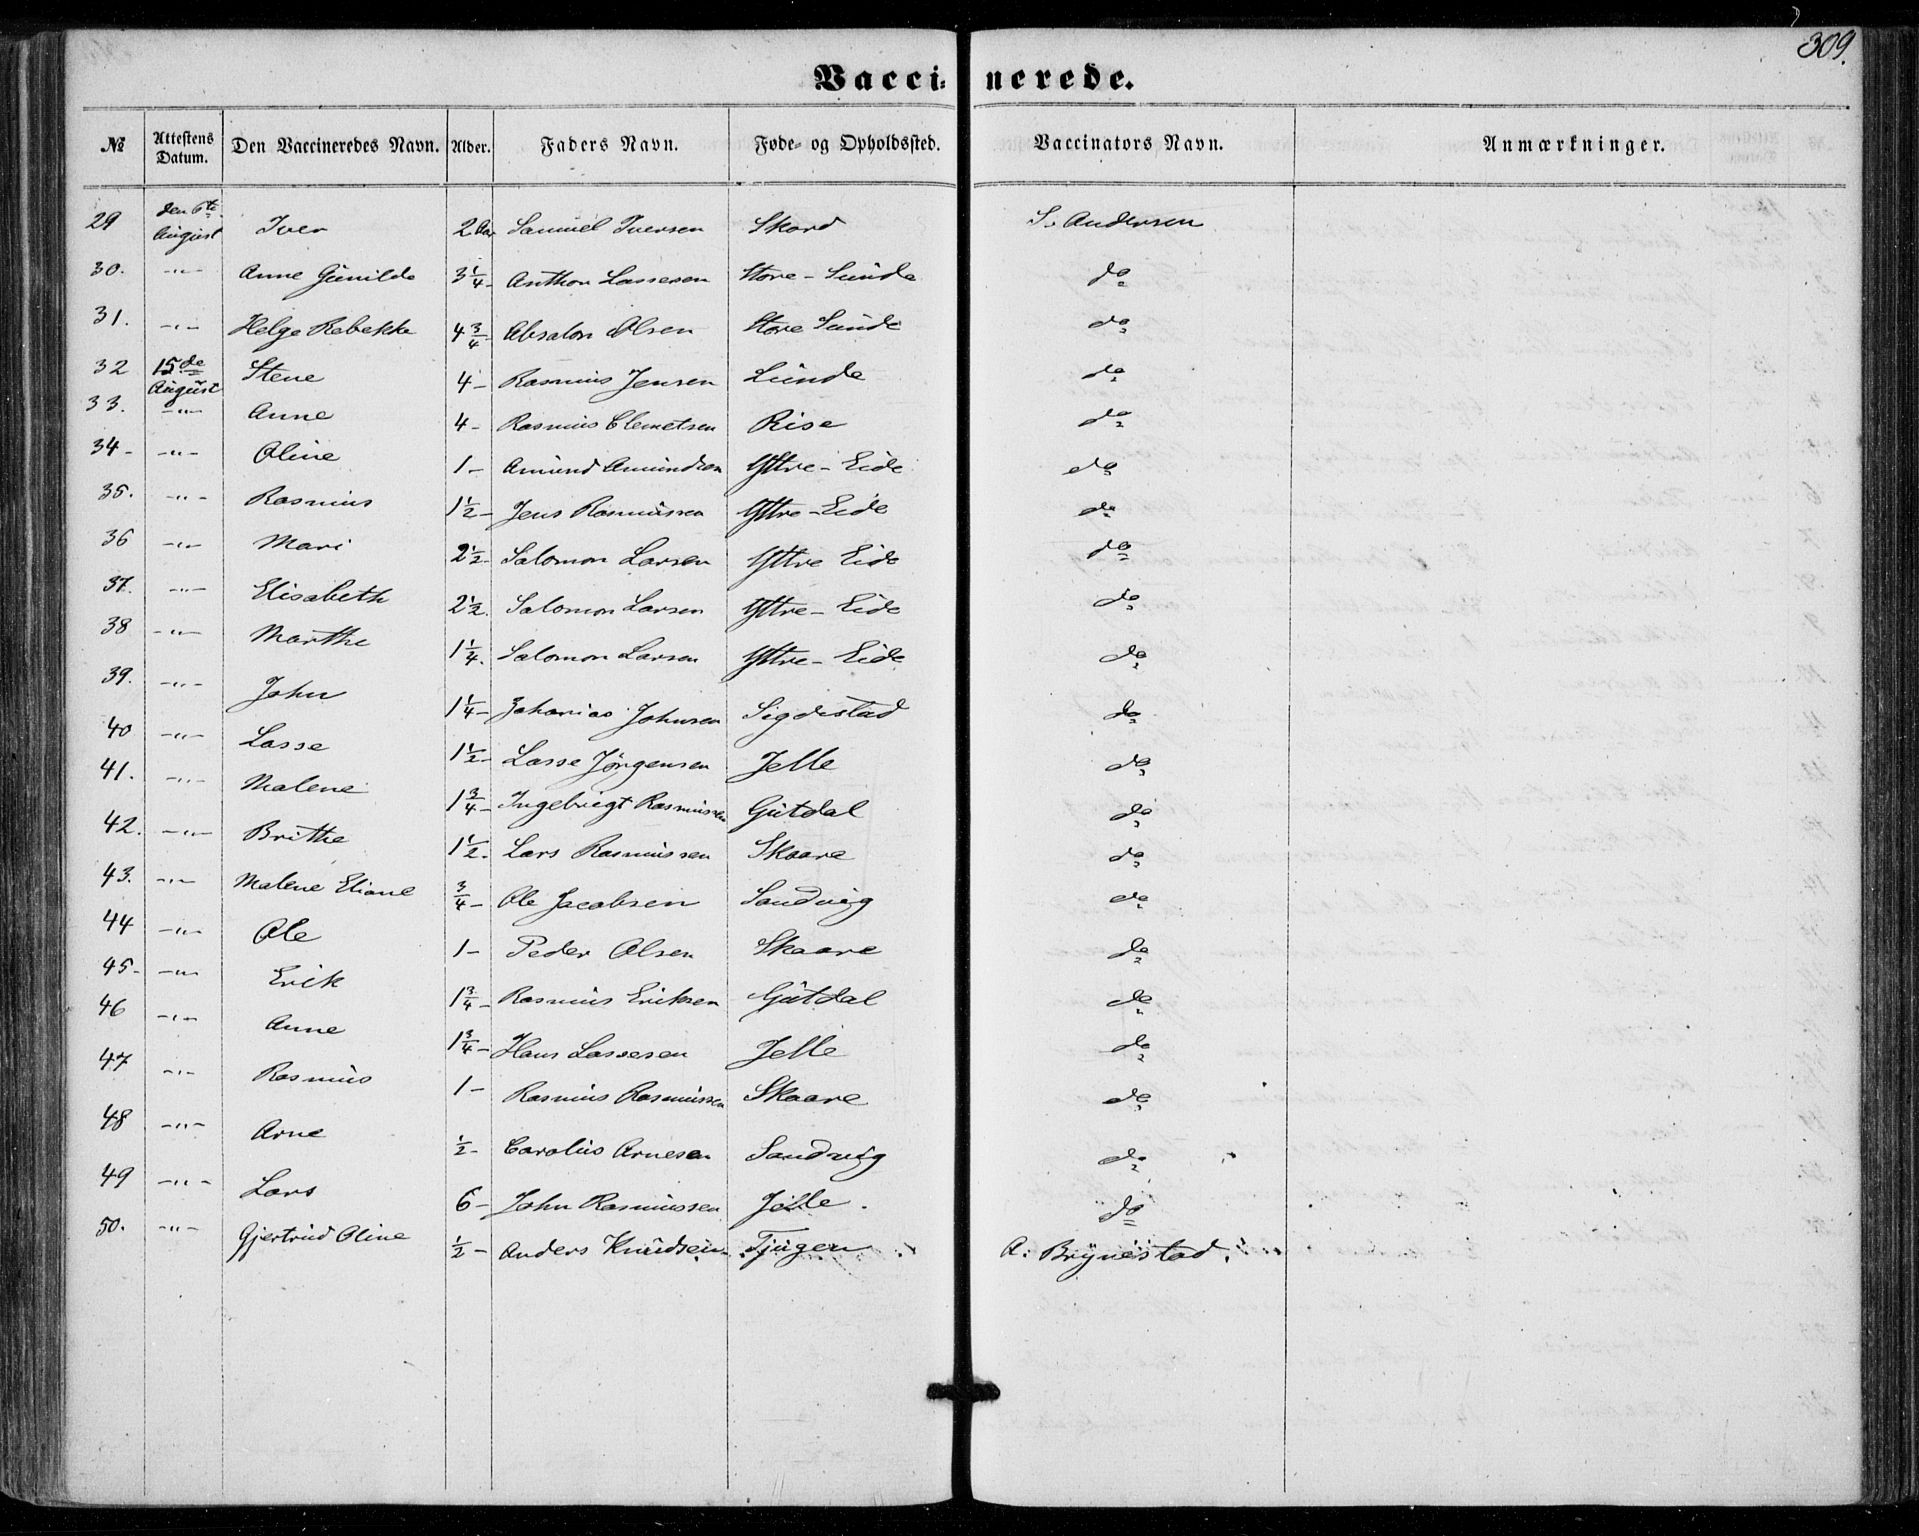 309.
Vaccinerede.
№ Attestens Datum. Den Vaccineredes Navn. Alder. Faders Navn. Føde- og Opholdssted. Vaccinators Navn. Anmærkninger.
29 den 6te August Iver 2 Aar Samuel Iversen Skord S. Andersen
30. -"- Anne Gunilde 3 1/4 - Anthon Lassesen Store-Sunde do
31. -"- Helge Rebekke 4 3/4 - Absalon Olsen Store Sunde do
32 15de August Stene 4 - Rasmus Jensen Lunde do
33. -"- Anne 4 - Rasmus Clemetsen Rise do
34 - -"- Oline 1 - Amund Amundsen Yttre-Eide do
35. -"- Rasmus 1 1/2 - Jens Rasmussen Yttre-Eide do
36 -"- Mari 2 1/2 - Salomon Larsen Yttre Eide do
37. -"- Elisabeth 2 1/2. Salomon Larsen Yttre-Eide do
38 -"- Marthe 1 1/4. Salomon Larsen Yttre-Eide do
39. -"- John 1 1/4 - Zakarias Johnsen Sigdestad do
40 -"- Lasse 1 1/2 - Lasse Jörgensen Jelle do
41. -"- Malene 1 3/4 - Ingebrigt Rasmussen Gutdal do
42. -"- Brithe 1 1/2. Lars Rasmussen Skaare do
43. -"- Malene Eliane 3/4 - Ole Jacobsen Sandvig do
44 -"- Ole 1 - Peder Olsen Skaare do
45 - -"- Erik 1 3/4 - Rasmus Eriksen Gutdal do
46 -"- Anne 1 3/4 - Hans Lassesen Jelle do
47 -"- Rasmus 1 - Rasmus Rasmussen Skaare do
48 -"- Arne 1/2 - Carolus Arnesen Sandvig do
49 -"- Lars 6 - John Rasmussen Jelle. do
50. -"- Gjertrud Oline 1/2 - Anders Knudsen Tjugen A. Brynestad.